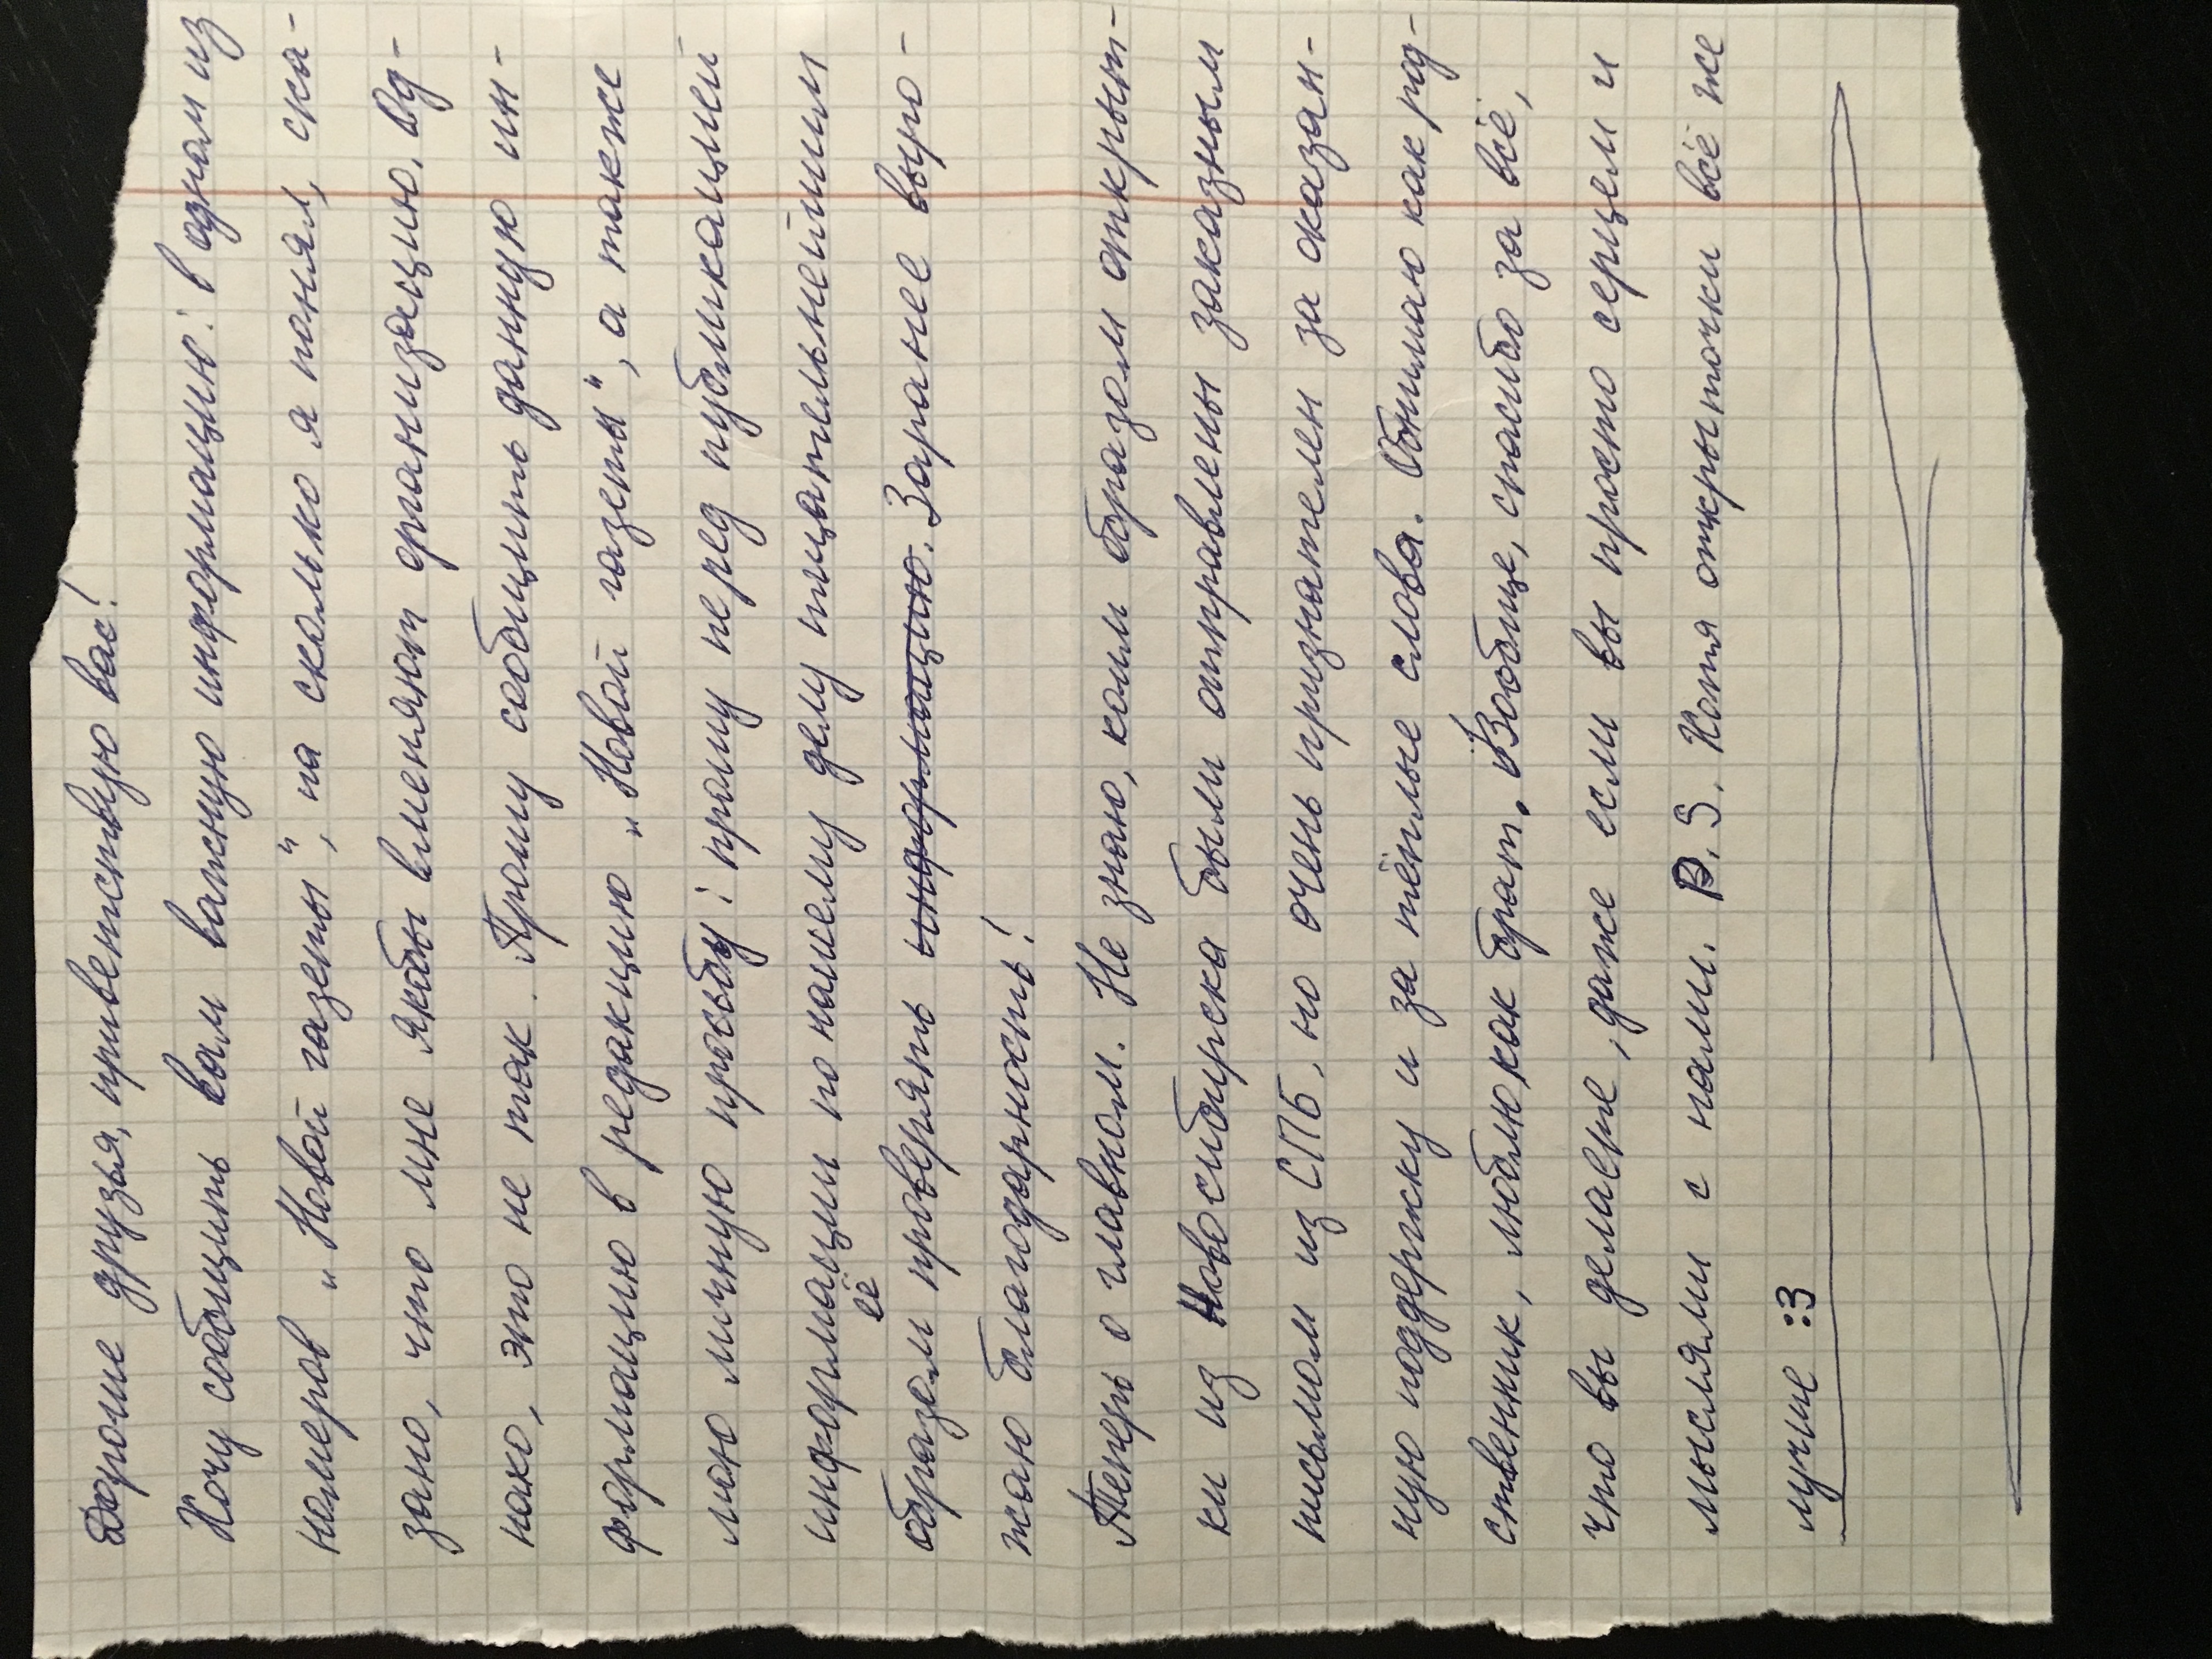 Дорогие друзья, приветствую вас!
Хочу сообщить вам важную информацию: в одном из
номеров „Новой газеты", на сколько я понял, ска-
зано, что мне якобы вменяют организацию. Од-
нако, это не так. Прошу сообщить данную ин-
формацию в редакцию „Новой газеты", а также
мою личную просьбу: прошу перед публикацией
информации по нашему делу тщательнейшим
образом её проверять информацию. Заранее выра-
жаю благодарность!
Теперь о главном. Не знаю, коим образом открыт-
ки из Новосибирска были отправлены заказным
письмом из СПБ, но очень признателен за оказан-
ную поддержку и за тёплые слова. Обнимаю как род-
ственник, люблю как брат. Вообще, спасибо за всё,
что вы делаете, даже если вы просто серцем и
мыслями с нами. P.S. Котя открыточки всё же
лучше :3